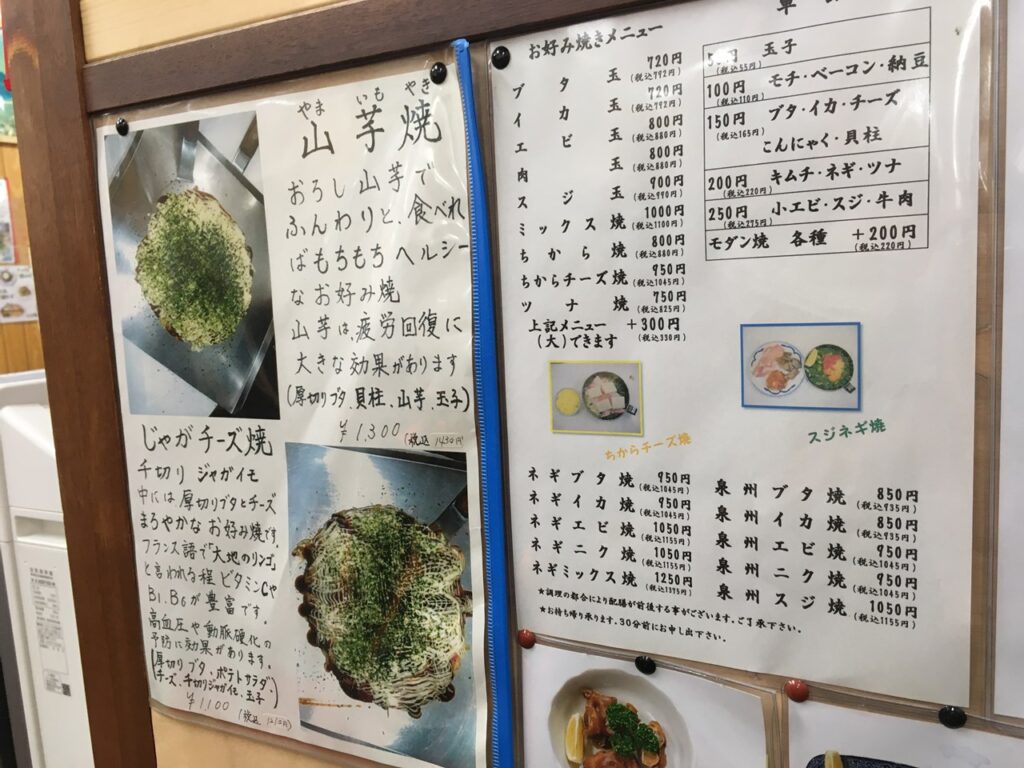 やま いも やき
山芋焼
おろし山芋で
ふんわりと、食べれ
ばもちもちヘルシー
なお好み焼
山芋は、疲労回復に
大きな効果があります
(厚切りブタ、貝柱、山芋、玉子)
¥1,300 (税込 1430円)
じゃがチーズ焼
千切り ジャガイモ
中には厚切りブタとチーズ
まろやかな お好み焼です。
フランス語で「大地のリンゴ」
と言われる程 ビタミンCや
B1、B6が豊富です。
高血圧や動脈硬化の
予防に効果があります。
(厚切りブタ・ポテトサラダ・
チーズ、千切りジャガイモ、玉子)
¥1,100 (税込 1210円)
お好み焼きメニュー
ブタ玉 720円
(税込792円)
イカ玉 720円
(税込792円)
エビ玉 800円
(税込880円)
肉玉 800円
(税込880円)
スジ玉 900円
(税込990円)
ミックス焼 1000円
(税込1100円)
ちから焼 800円
(税込880円)
ちからチーズ焼 950円
(税込1045円)
ツナ焼 750円
(税込825円)
上記メニュー +300円
(大)できます (税込330円)
50円 玉子
(税込55円)
100円 モチ・ベーコン・納豆
(税込110円)
150円 ブタ・イカ・チーズ
(税込165円) こんにゃく・貝柱
200円 キムチ・ネギ・ツナ
(税込220円)
250円 小エビ・スジ・牛肉
(税込275円)
モダン焼 各種 +200円
(税込220円)
ちからチーズ焼
スジネギ焼
ネギブタ焼 950円
(税込1045円)
ネギイカ焼 950円
(税込1045円)
ネギエビ焼 1050円
(税込1155円)
ネギニク焼 1050円
(税込1155円)
ネギミックス焼 1250円
(税込1375円)
泉州ブタ焼 850円
(税込935円)
泉州イカ焼 850円
(税込935円)
泉州エビ焼 950円
(税込1045円)
泉州ニク焼 950円
(税込1045円)
泉州スジ焼 1050円
(税込1155円)
★調理の都合により配膳が前後する事がございます。ご了承下さい。
★お持ち帰り承ります。30分前にお申し出下さい。